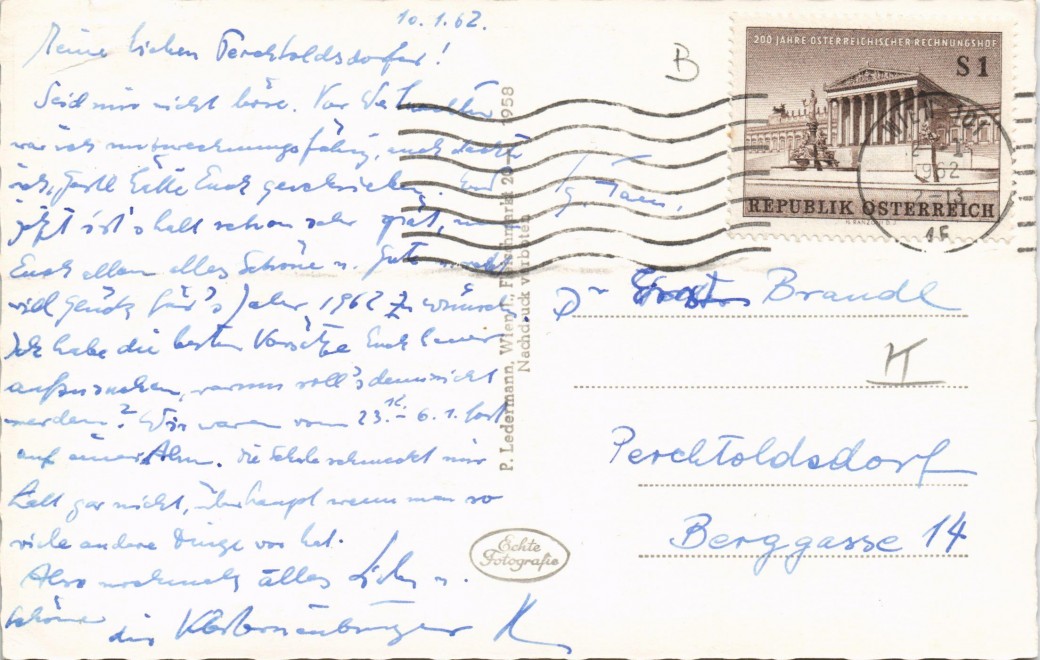 10.1.62.
Meine lieben Perchtoldsdorfer!
Seid mir nicht böse. Vor Weihnachten
war ich nicht
ich, Gerti hätte Euch geschrieben. Und
jetzt ist's halt schon sehr spät, um
Euch allen alles Schöne u. Gute u.
viel Glück für's Jahr 1962 zu wünschen.
Ich habe die besten Vorsätze Euch heuer
aufzusuchen, warum soll's denn nicht
werden? Wir waren vom 23.12.-6.1. fort
auf einer Alm. Die Schule schmeckt mir
halt gar nicht, überhaupt wenn man so
viele andere Dinge vor hat.
Also nochmals alles Liebe u.
Schöne
die Klosterneuburger
P. Ledermann, Wien I., Fleischmarkt 20 1958
Nachdruck verboten
Echte
Fotografie
B
200 JAHRE ÖSTERREICHISCHER RECHNUNGSHOF
S 1
REPUBLIK ÖSTERREICH
WIEN 101
1962
15
Fg. Tam.
Dr Brandl
H
Perchtoldsdorf
Berggasse 14